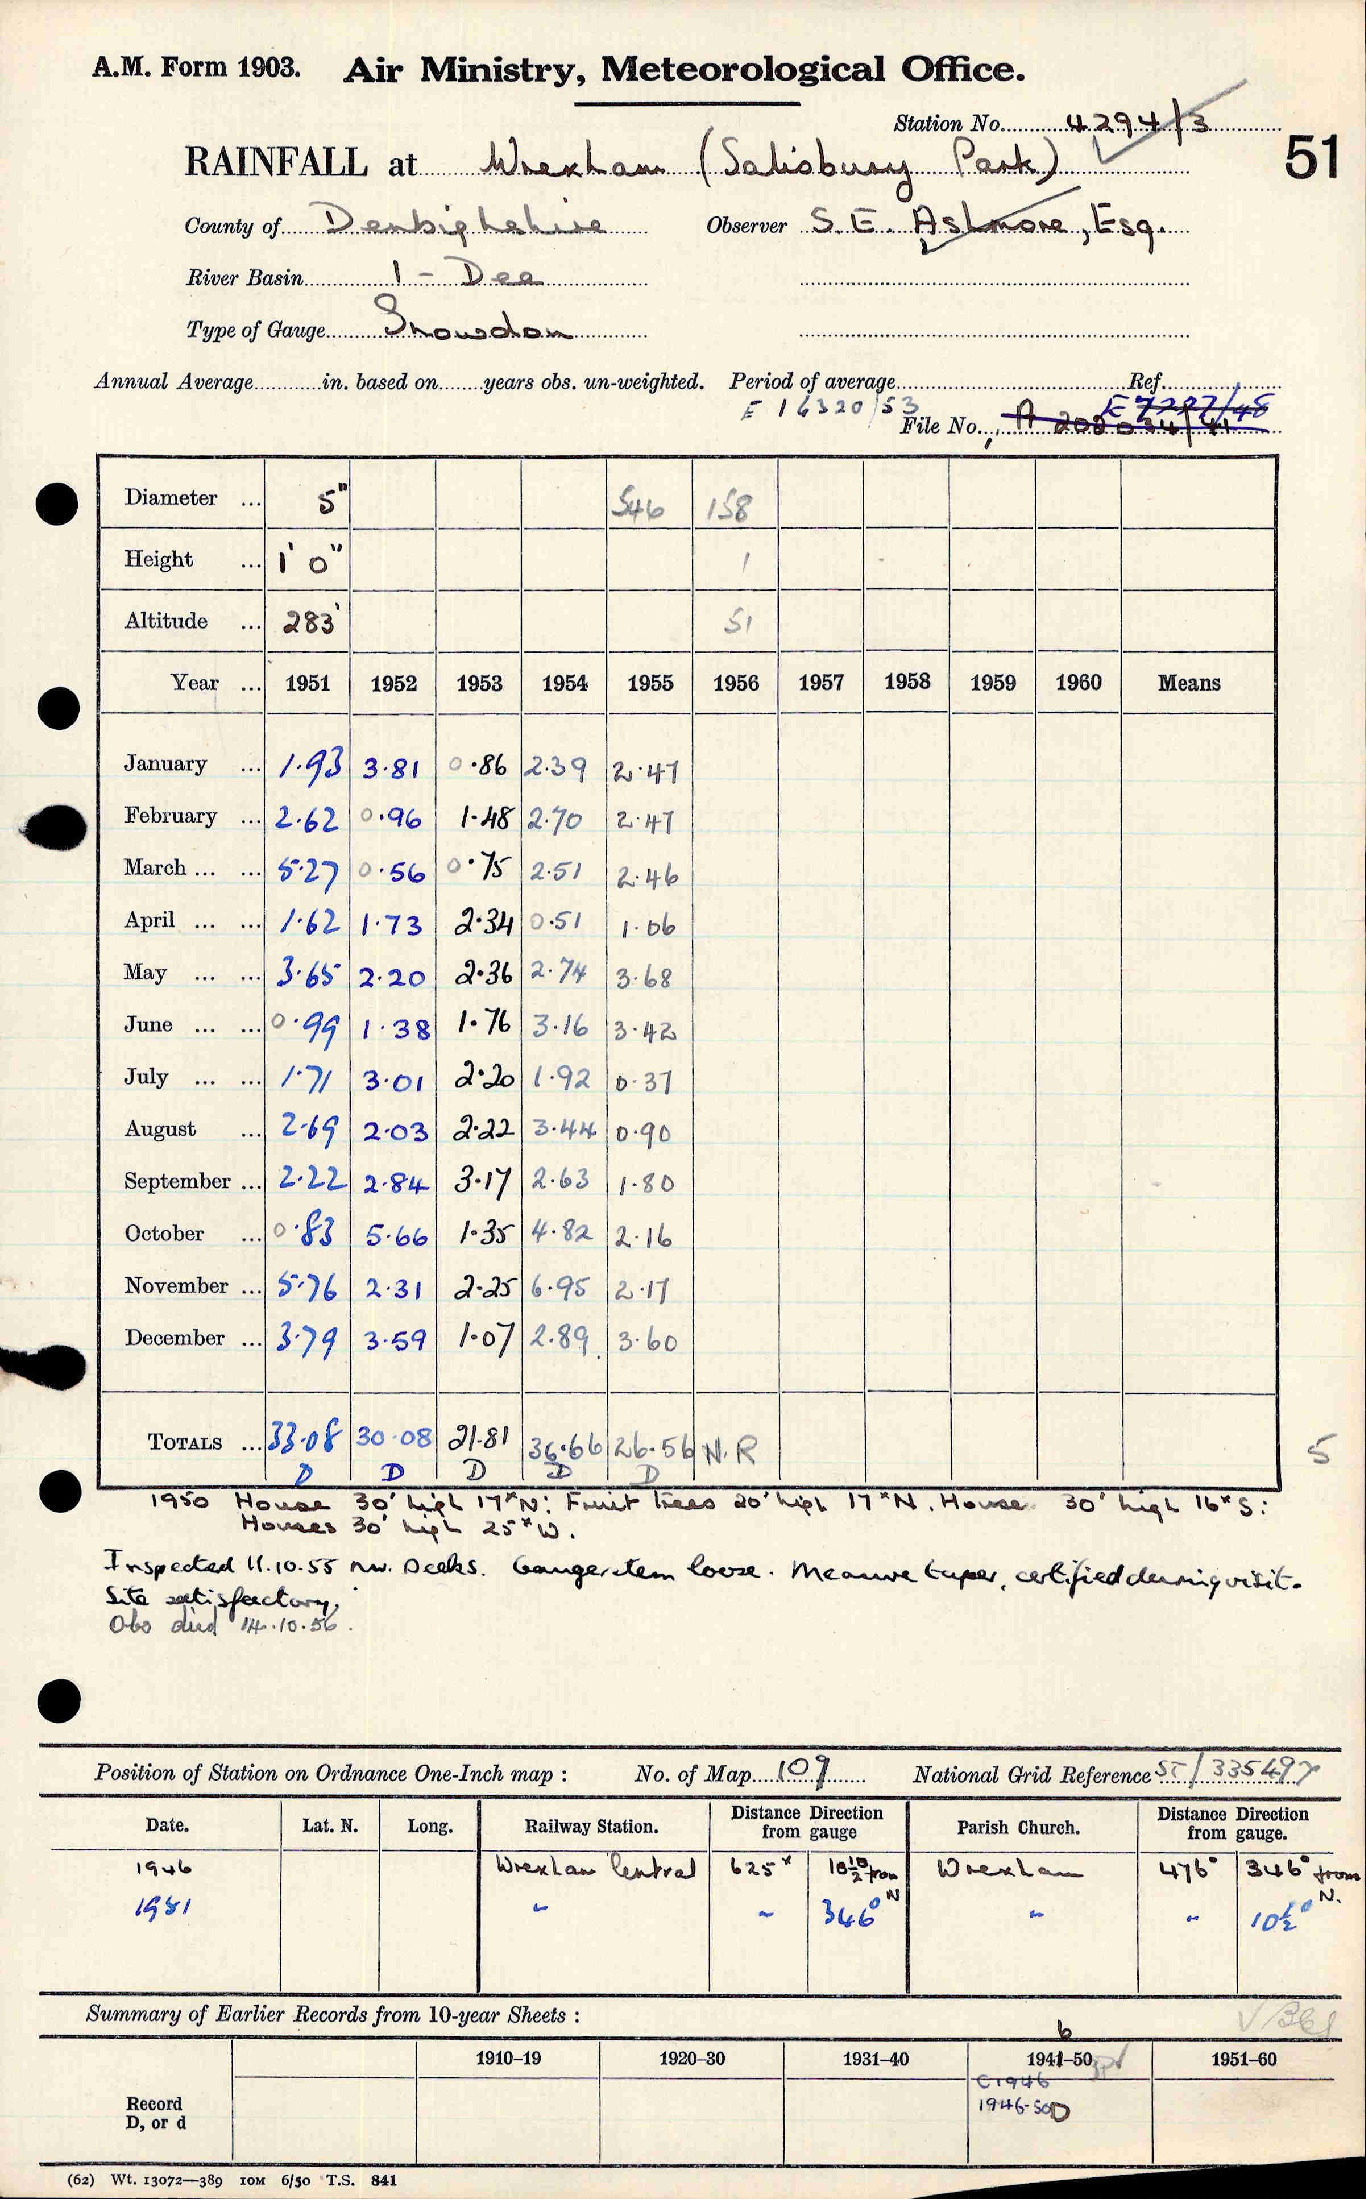 A.M. Form 1903. Air Ministry, Meteorological Office.
Station No. 4294/3
51
RAINFALL at Wrexham (Salisbury Park)
County of Denbighshire Observer S. E. Ashmore, Esq.
River Basin 1 - Dee
Type of Gauge Snowdon
Annual Average in. based on years obs. un-weighted. Period of average Ref.
E 16320/53 File No. A 202034/41 E 7227/48
Diameter ... 5" 546 158
Height ... 1' 0" 1
Altitude ... 283' 51
Year ... 1951 1952 1953 1954 1955 1956 1957 1958 1959 1960 Means
January ... 1.93 3.81 0.86 2.39 2.47
February ... 2.62 0.96 1.48 2.70 2.47
March ... ... 5.27 0.56 0.75 2.51 2.46
April ... ... 1.62 1.73 2.34 0.51 1.06
May ... ... 3.65 2.20 2.36 2.74 3.68
June ... ... 0.99 1.38 1.76 3.16 3.42
July ... ... 1.71 3.01 2.20 1.92 0.37
August ... 2.69 2.03 2.22 3.44 0.90
September ... 2.22 2.84 3.17 2.63 1.80
October ... 0.83 5.66 1.35 4.82 2.16
November ... 5.76 2.31 2.25 6.95 2.17
December ... 3.79 3.59 1.07 2.89 3.60
TOTALS ... 33.08 30.08 21.81 36.66 26.56 N.R 5
D D D D D
1950 House 30' high 17x N: Fruit trees 20' high 17x N. House 30' high 16x S:
Houses 30' high 25x W.
Inspected 11.10.55 Deeks. Gauge stem loose. Measure taper, certified during visit.
Site satisfactory.
Obs died 14.10.56.
Position of Station on Ordnance One-Inch map : No. of Map 109 National Grid Reference 335497
Date. Lat. N. Long. Railway Station. Distance Direction from gauge Parish Church. Distance Direction from gauge.
1946 Wrexham Central 625x 10 1/2° from N Wrexham 476° 346° from N.
1951 " " 346° " " 10 1/2°
Summary of Earlier Records from 10-year Sheets :
6
1910–19 1920–30 1931–40 1941–50 1951–60
C1946
Record
D, or d 1946-50D
(62) Wt. 13072—389 10M 6/50 T.S. 841